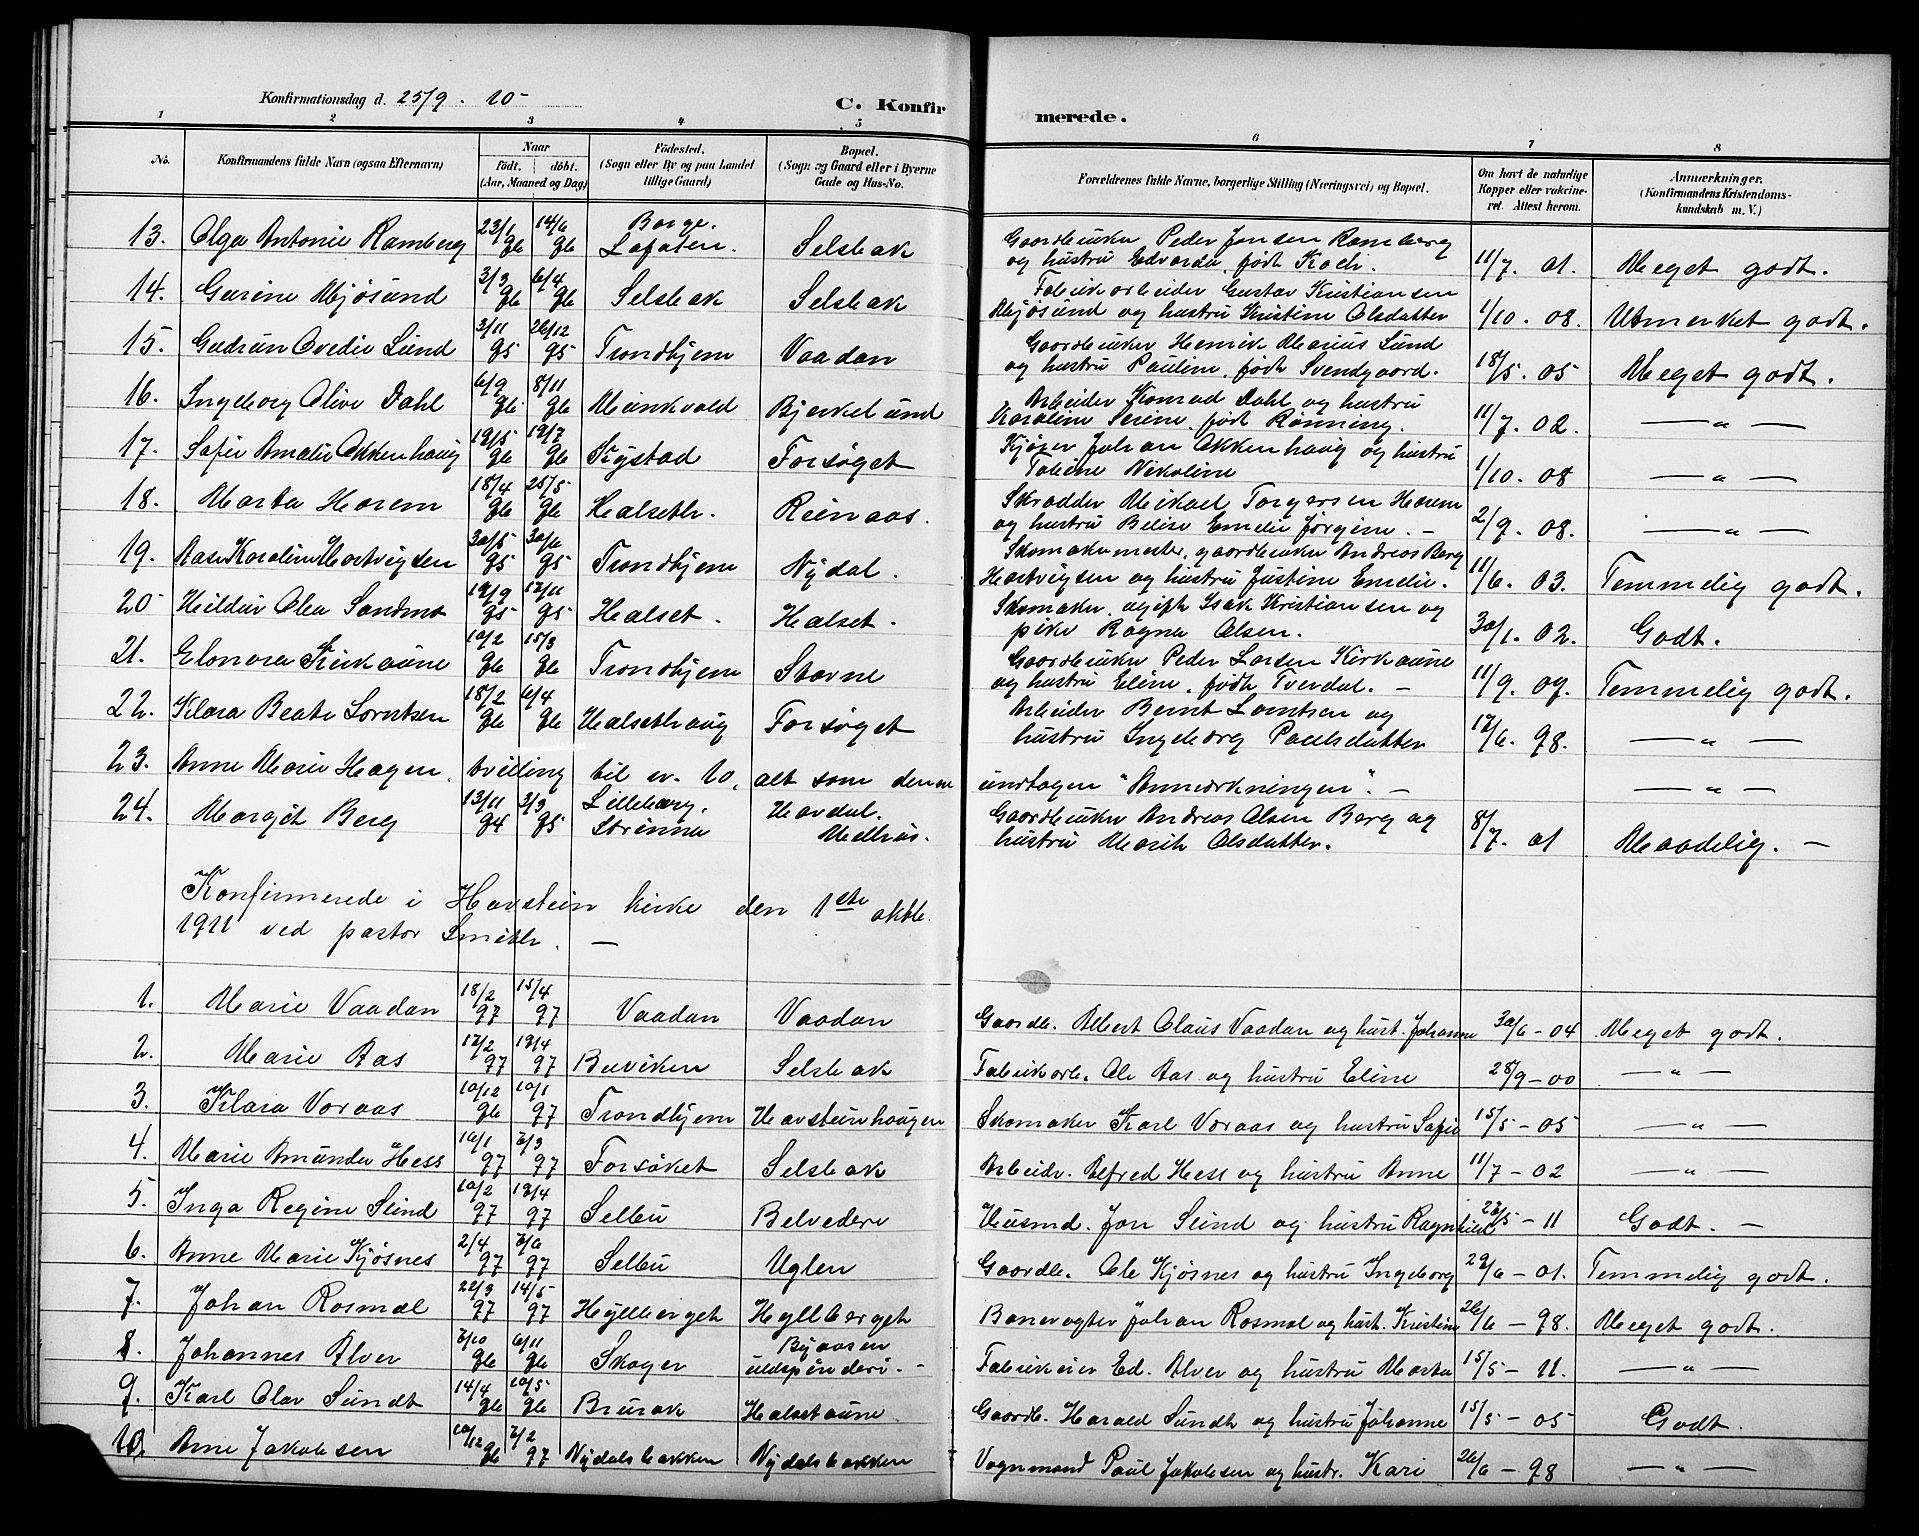 Konfirmationsdag d. 25/9 . 10 C. Konfirmerede.
1 2 3 4 5 6 7 8
No. Konfirmandens fulde Navn (ogsaa Efternavn) Naar født. døbt. (Aar, Maaned og Dag) Fødested. (Sogn eller By og paa Landet tillige Gaard) Bopæl. (Sogn og Gaard eller i Byerne Gade og Hus-No. Forældrenes fulde Navne, borgerlige Stilling (Næringsvei) og Bopæl. Om havt de naturlige Kopper eller vakcineret. Attest herom. Anmærkninger. (Konfirmandens Kristendomskundskab m. V.)
13. Olga Antonie Ramberg 23/1 96 14/6 96 Borge. Lofoten. Selsbak Gaardbruker Peder Jonsen Ramberg og hustru Edvarda, født Koch. 11/7. 01. Meget godt.
14. Gurine Mjøsund 3/3 96 6/4 96 Selsbak Selsbak Fabrikarbeider Gustav Kristiansen Mjøsund og hustru Kristine Olsdatter 1/10. 08. Utmerket godt.
15. Gudrun Ovedie Lund 3/11 95 26/12 95 Trondhjem Vaadan Gaardbruker Henrik Marius Lund og hustru Pauline, født Svendgaard. 18/5. 05 Meget godt.
16. Ingeborg Olive Dahl 6/9 96 8/11 96 Munkvold Bjerkelund Arbeider Konrad Dahl og hustru Karoline Serine, født Rønning. 11/7. 02. — " —
17. Sofie Amalie Okkenhaug 19/5 96 19/7 96 Rystad Forsøget Kjører Johan Okkenhaug og hustru Tobine Nikoline 1/10. 08 — " —
18. Marta Horem 18/4 96 25/5 96 Halseth. Reinaas. Skrædder Mikael Torgersen Horem og hustru Belise Emelie Jørgine. — 2/9. 08. — " —
19. Aase Karoline Hartvigsen 30/5 95 30/6 95 Trondhjem Nydal. Skomakermester, gaardbruker Andreas Berg Hartvigsen og hustru Justine Emelie. 11/6. 03. Temmelig godt.
20 Hildur Olea Sandmo 19/9 95 17/11 95 Halset. Halset. Skomaker, ugift Isak Kristiansen og pike Ragna Olsen. 30/1. 02. Godt.
21. Elonora Kirkaune 10/2 96 15/3 96 Trondhjem Stavne Gaardbruker Peder Larsen Kirkaune og hustru Eline, født Tverdal. — 11/9. 09. Temmelig godt.
22. Klara Beate Lorntsen 18/2 96 6/4 96 Halsethaug Forsøget Arbeider Bernt Lorntsen og hustru Ingeborg Paulsdatter 17/6. 98. — " —
23. Anne Marie Hagen, tvilling til nr. 10, alt som denne undtagen "Anmærkningen". — — " —
24. Margit Berg 13/11 94 3/3 95 Lilleberg. Strinna Havdal. Melhus. Gaardbruker Andreas Olsen Berg og hustru Marit Olsdatter. 8/7. 01 Maadelig. —
Konfirmerede i Havstein kirke den 1ste oktb.
1911 ved pastor Smith. —
1. Marie Vaadan 18/2 97 15/4 97 Vaadan Vaadan Gaardb. Albert Claus Vaadan og hust. Johanne 30/6 – 04 Meget godt.
2. Marie Aas 17/2 97 19/4 97 Buviken Selsbak Fabrikarb. Ole Aas og hustru Eline 28/9 – 00 — " —
3. Klara Voraas 10/12 96 10/1 97 Trondhjem Havsteinhaugen Skomaker Karl Voraas og hustru Sofie 15/5 – 05 — " —
4. Marie Amunda Hess 16/1 97 7/3 97 Forsøket Selsbak Arbeidr. Alfred Hess og hustru Anne 11/7 – 02 — " —
5. Inga Regine Slind 10/2 97 19/4 97 Selbu Belvedere Husmd. Jon Slind og hustru Ragnhild 23/5 – 11 Godt. —
6. Anne Marie Kjøsnes 2/4 97 7/6 97 Selbu Uglen Gaardb. Ole Kjøsnes og hustru Ingeborg 29/6 – 01. Temmelig godt.
7. Johan Rosmæl 22/3 97 14/5 97 Hyllberget Hyllberget Banevogter Johan Rosmæl og hust. Kristine 26/6 – 98. Meget godt.
8. Johannes Alver 7/10 96 6/11 96 Skoger Byaasen uldspinderi. – Fabrikeier Ed. Alver og hustru Marta 15/5 – 11. — " —
9. Karl Olav Sundt 14/4 96 10/5 96 Brurak Halsetaune Gaardb. Harald Sundt og hustru Johanne 15/5 – 05 Godt.
10. Arne Jakobsen 10/12 96 7/2 97 Nydalsbakken Nydalsbakken Vognmand Paul Jakobsen og hustr. Kari 26/6 – 98 — " —